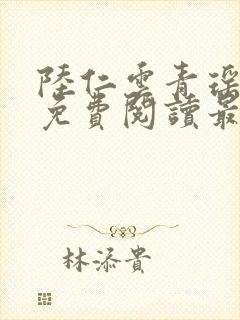 陸仁雲青瑤
免費閱讀最
林添貴